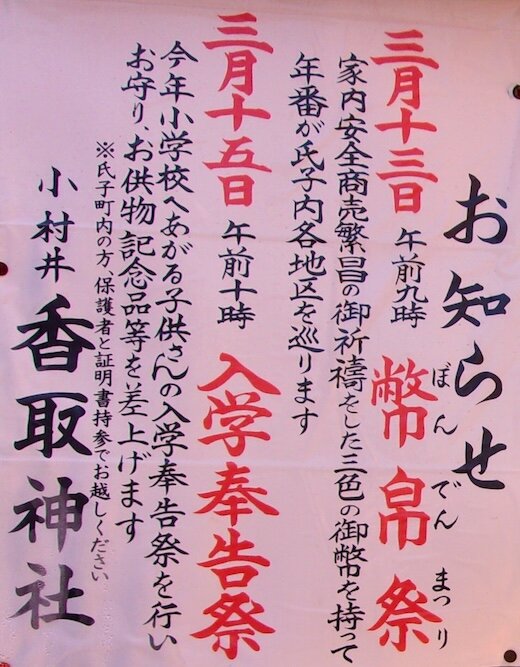 お知らせ
三月十三日 午前九時 幣帛祭
ぼんでんまつり
家内安全商売繁昌の御祈禱をした三色の御幣を持って
年番が氏子内各地区を巡ります
三月十五日 午前十時 入学奉告祭
今年小学校へあがる子供さんの入学奉告祭を行い
お守り、お供物記念品等を差上げます
※氏子町内の方、保護者と証明書持参でお越しください
小村井 香取神社